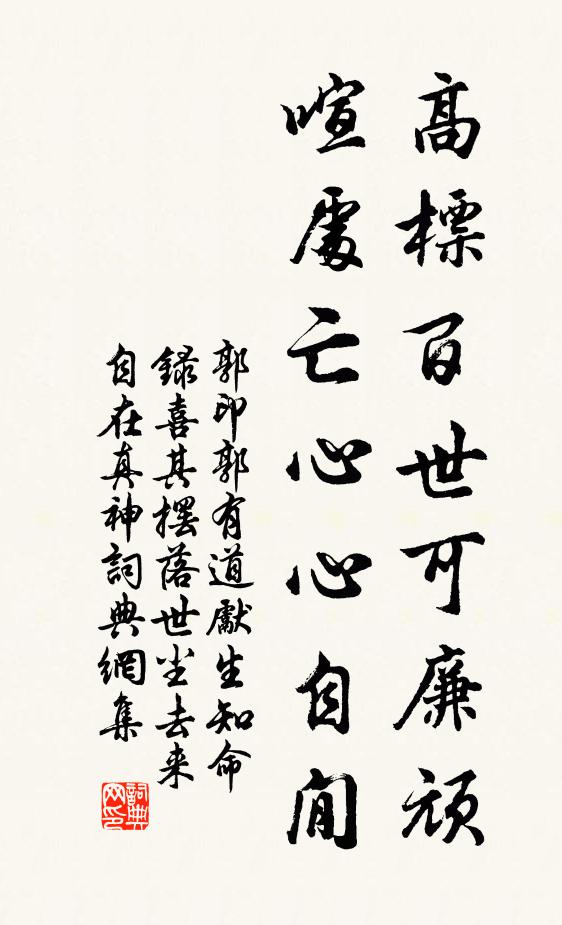 高標百世可廉頑
喧處亡心心自閒
郭印郭有道獻生知命
録喜其擺落世尘去来
自在真神詞典網集
詞典网印